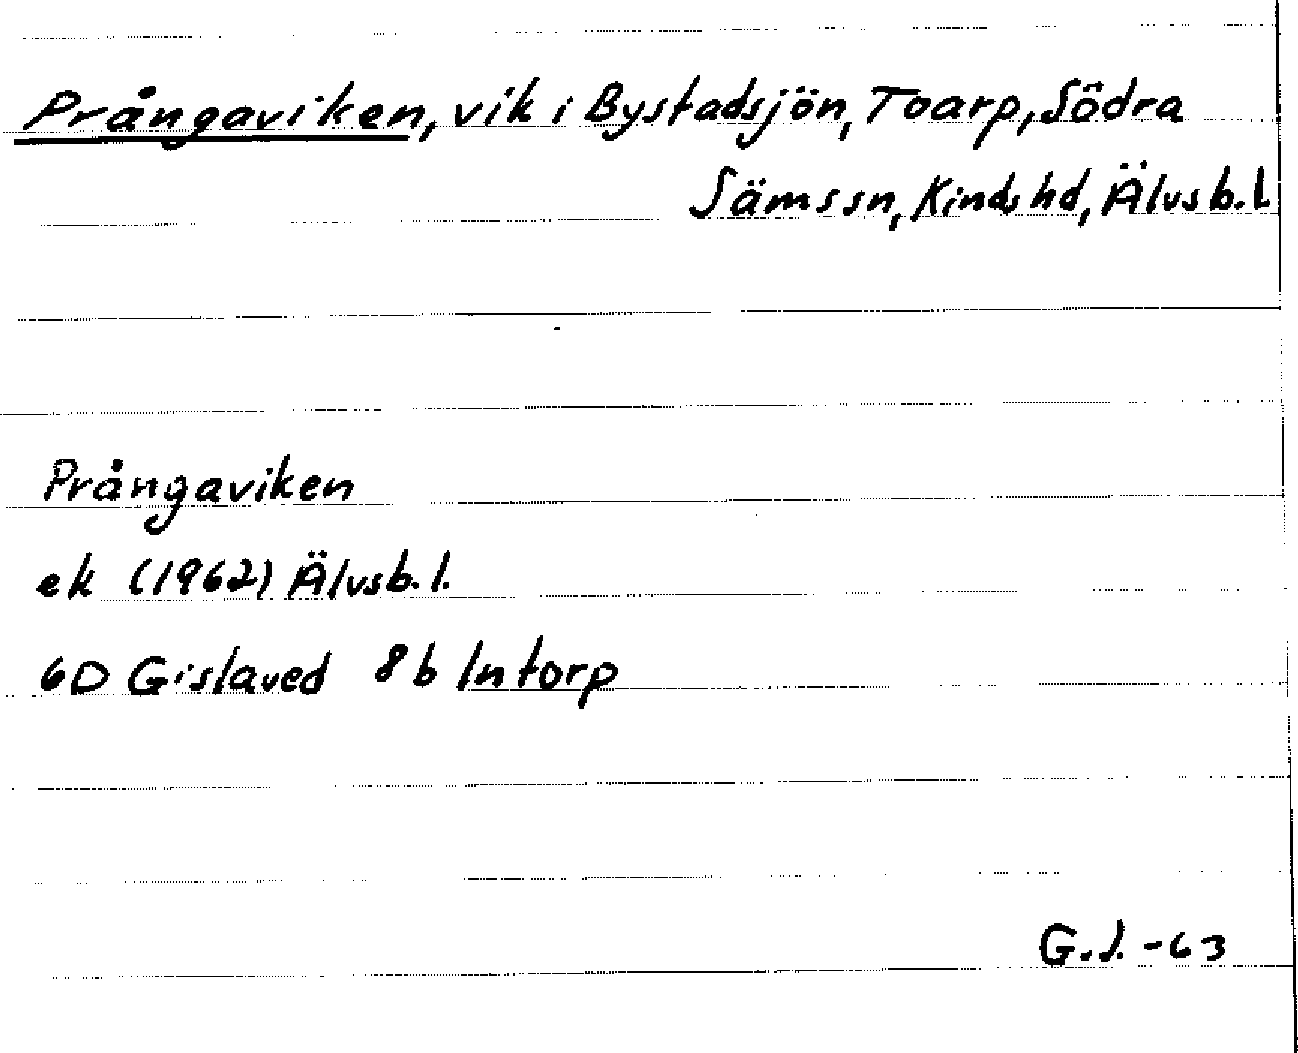 Prångaviken, vik i Bystadsjön, Toarp, Södra
Säms sn, Kinds hd, Älvsb. l.
Prångaviken
ek (1962) Älvsb. l.
6D Gislaved 8b Intorp
G.J. -63